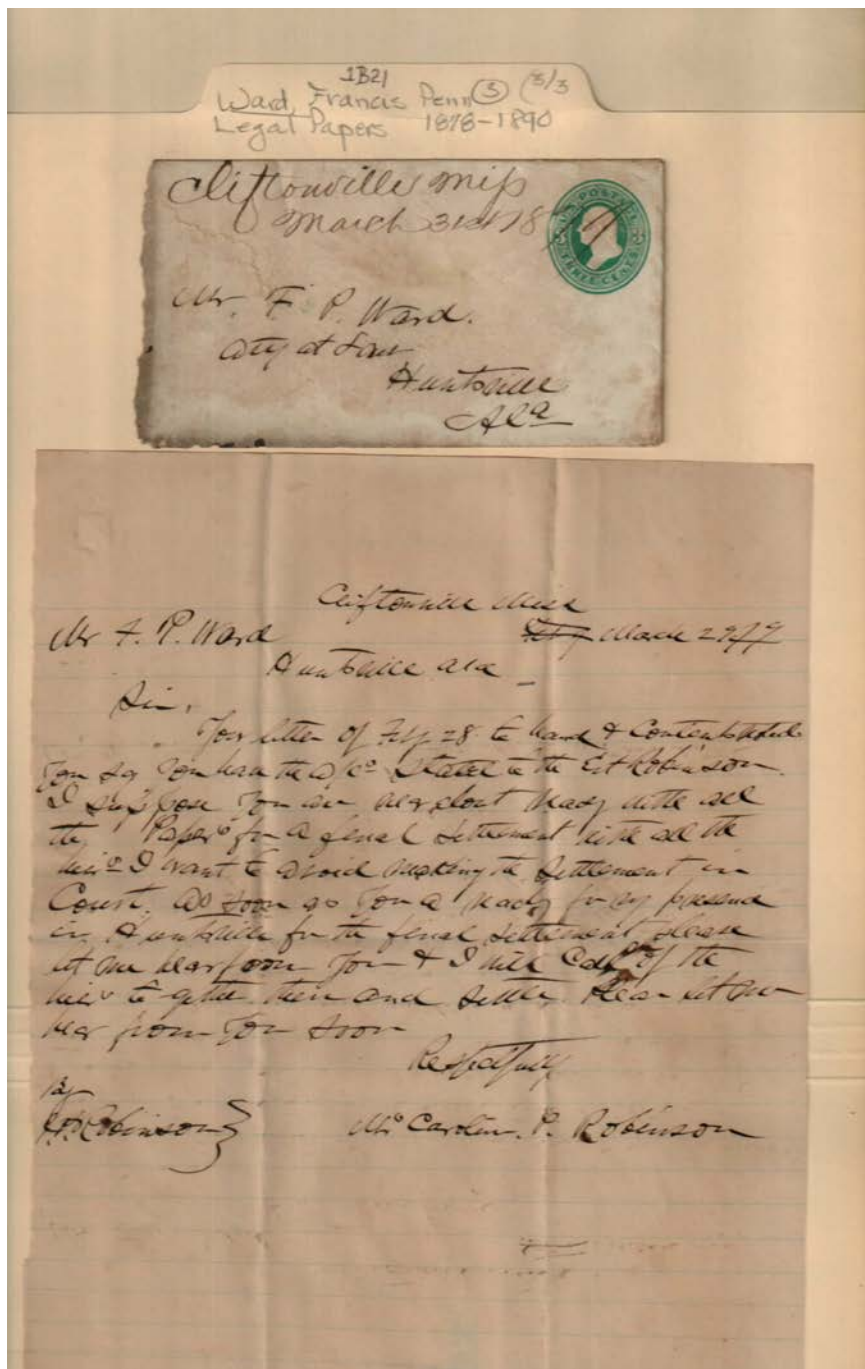 1B21
Ward, Francis Penn ③ (3/3
Legal Papers 1878-1890
Cliftonville Miss
March 31st 18
U.S. POSTAGE
THREE CENTS
Mr. F. P. Ward.
Atty at Law
Huntsville
Ala
Cliftonville Miss
Mr F. P. Ward March 29
Huntsville Ala
Sir,
Your letter of 28 to hand & Contents
You say You have the a/cs Stated to the Est Robinson.
I suppose You are near about ready with all
the Papers for a final Settlement with all the
heirs I want to avoid making the Settlement in
Court. As soon as You a ready for my presend
in Huntsville for the final settlement please
let me hear from You & I will Call of the
heirs to gether then and Settle. Please let me
hear from You Soon
Respectfully
By
Robinson Mrs Carolin. P. Robinson